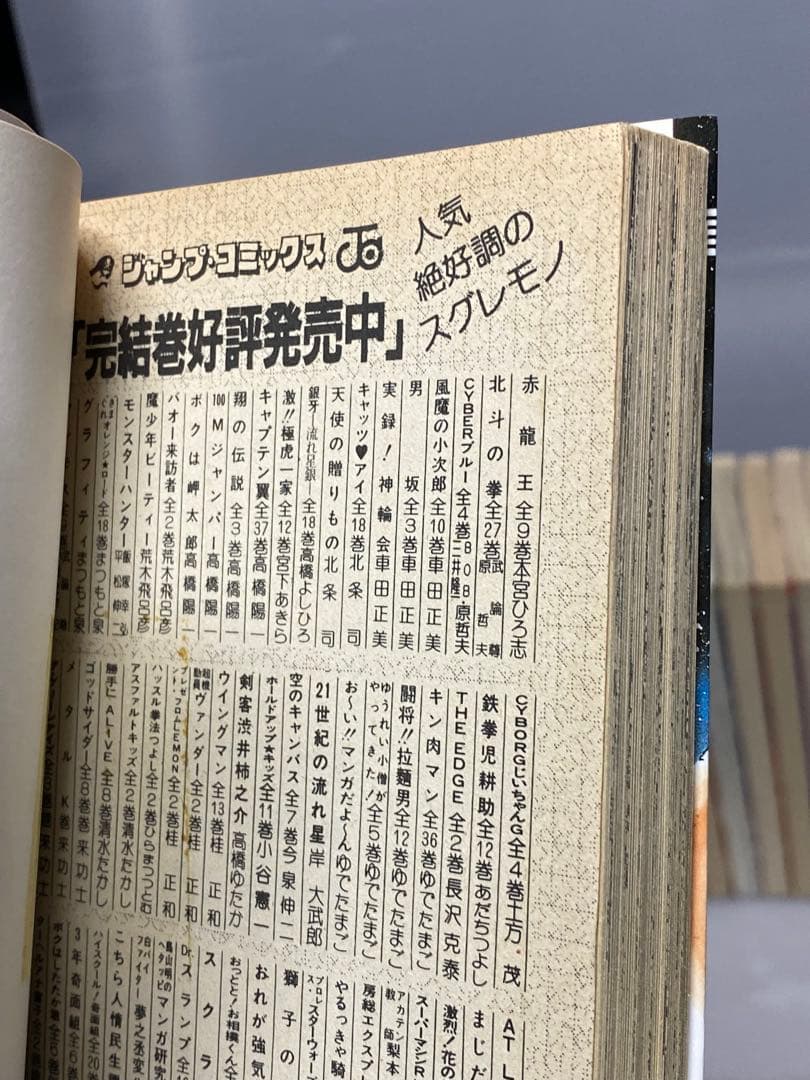 ジャンプ・コミックス
人気
絶好調の
スグレモノ
「完結巻好評発売中」
赤龍王全9巻本宮ひろ志
北斗の拳全27巻武論尊 原哲夫
CYBERブルー全4巻BOB 二井隆 原哲夫
風魔の小次郎全10巻車田正美
男坂全3巻車田正美
実録!神輪会車田正美
キャッツ♥アイ全18巻北条司
天使の贈りもの北条司
銀牙―流れ星銀―全18巻高橋よしひろ
激!!極虎一家全12巻宮下あきら
キャプテン翼全37巻高橋陽一
翔の伝説全3巻高橋陽一
100Mジャンパー高橋陽一
ボクは岬太郎高橋陽一
バオー来訪者全2巻荒木飛呂彦
魔少年ビーティー荒木飛呂彦
モンスターハンター飯塚幸弘 平松伸二
きまぐれオレンジ★ロード全18巻まつもと泉
グラフィティまつもと泉
CYBORGじいちゃんG全4巻土方茂
鉄拳児耕助全12巻あだちつよし
THE EDGE全2巻長沢克泰
キン肉マン全36巻ゆでたまご
闘将!!拉麵男全12巻ゆでたまご
ゆうれい小僧がやってきた!全5巻ゆでたまご
お〜い!!マンガだよ〜んゆでたまご
21世紀の流れ星岸大武郎
空のキャンバス全7巻今泉伸二
ホールドアップ★キッズ全11巻小谷憲一
剣客渋井柿之介高橋ゆたか
ウイングマン全13巻桂正和
超機動員ヴァンダー全2巻桂正和
プレゼント・フロムLEMON全2巻桂正和
ハッスル拳法つよし全2巻ひらまつつとむ
アスファルトキッズ全2巻清水たかし
勝手にALIVE全8巻清水たかし
ゴッドサイダー全8巻巻来功士
メタルK巻来功士
AT L
まじだ
激烈!花の
スーパーマシンR
アカテン教師梨本
房総エクスプレ
やるっきゃ騎
プロレス・スターウォーズ
獅子の
おれが強気
おっとと!お相撲くん全
スクラ
Dr.スランプ全18
鳥山明のヘタッピマンガ研究
白バイファイター夢之丞変化
こちら人情民生
ハイスクール!奇面組全20巻
3年奇面組全6巻
ボクはしたたか君全5巻